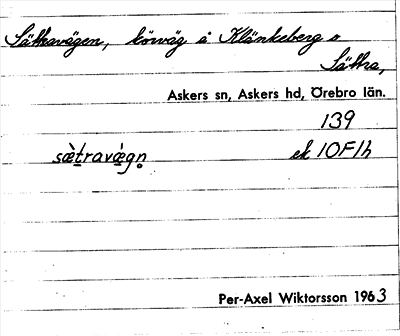 Sättravägen, körväg å Klänkeberg o
Sättra,
Askers sn, Askers hd, Örebro län.
139
sæ̀t̯ravæ̀gn̥ ek 10F1h
Per-Axel Wiktorsson 1963